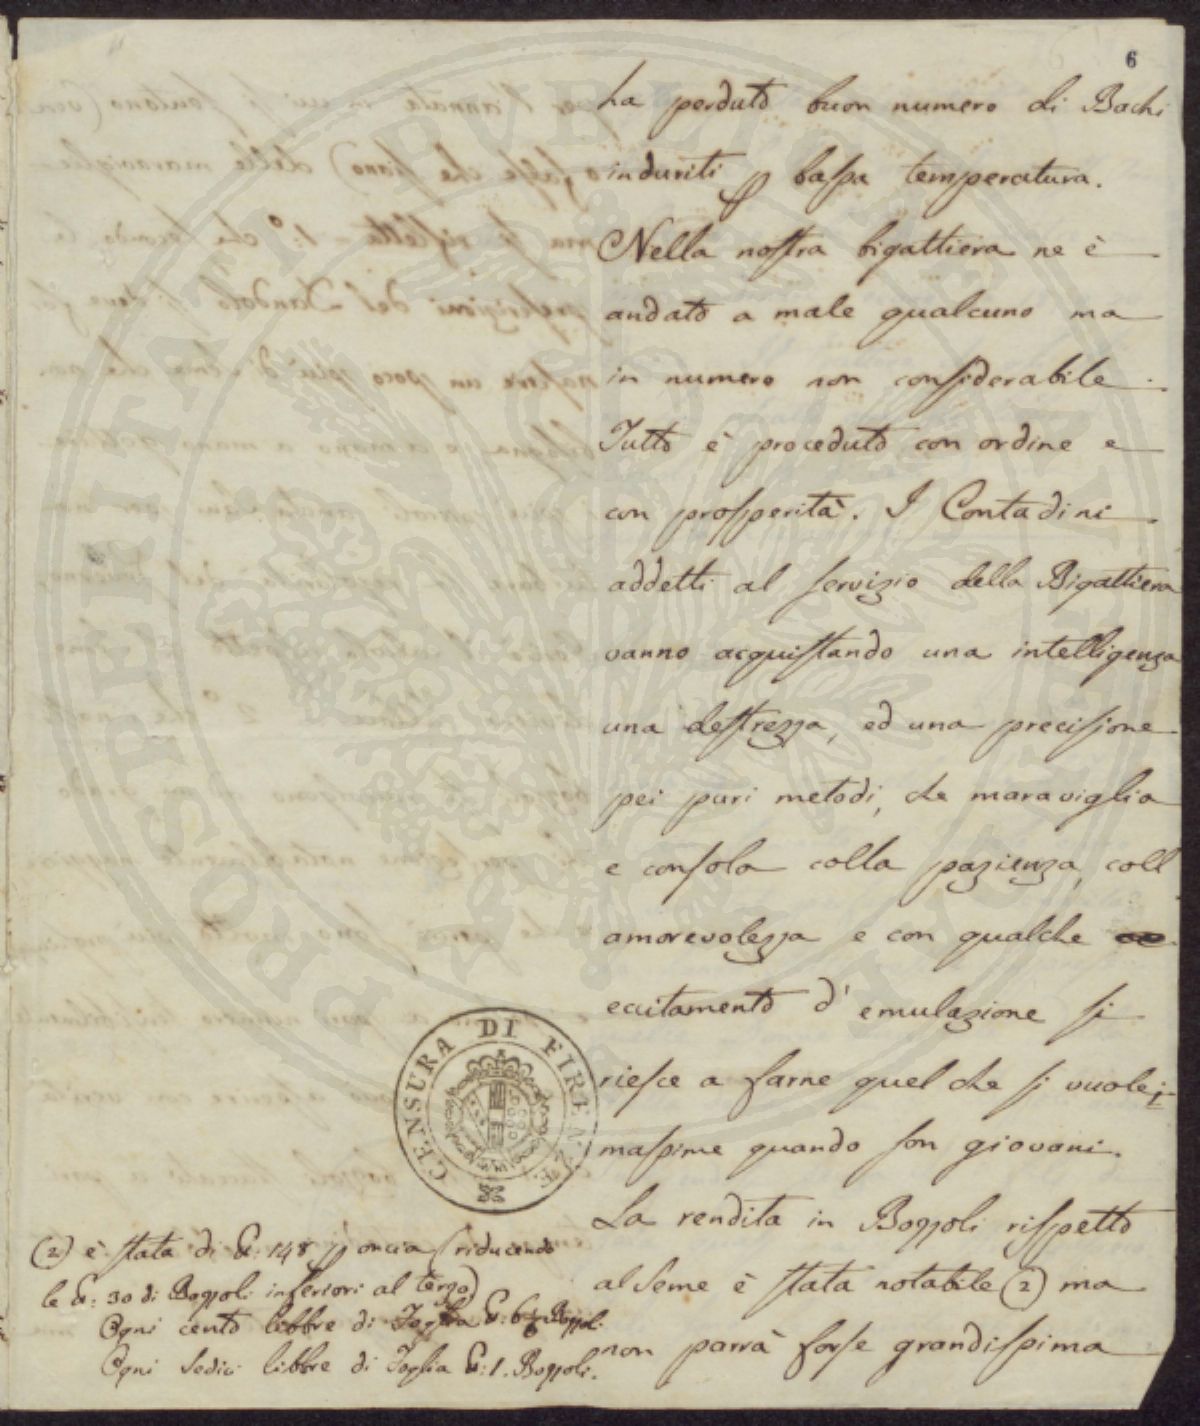 6
ha perduto buon numero di Bachi
induriti p bassa temperatura.
Nella nostra bigattiera ne è
andato a male qualcuno ma
in numero non considerabile.
Tutto è proceduto con ordine e
con prosperità. I Contadini
addetti al servizio della Bigattiera
vanno acquistando una intelligenza
una destrezza, ed una precisione
pei puri metodi, che maraviglia
e consola colla pazienza, coll
amorevolezza e con qualche
eccitamento d'emulazione si
riesce a farne quel che si vuole;
massime quando son giovani.
La rendita in Bozzoli rispetto
al seme è stata notabile (2) ma
non parrà forse grandissima
(2) è stata di £: 148 p oncia (riducendo
le £: 30 di Bozzoli inferiori al terzo)
Ogni cento libbre di Foglia £: 6 Bozzoli
Ogni sedici libbre di Foglia £: 1. Bozzoli.
CENSURA DI FIRENZE